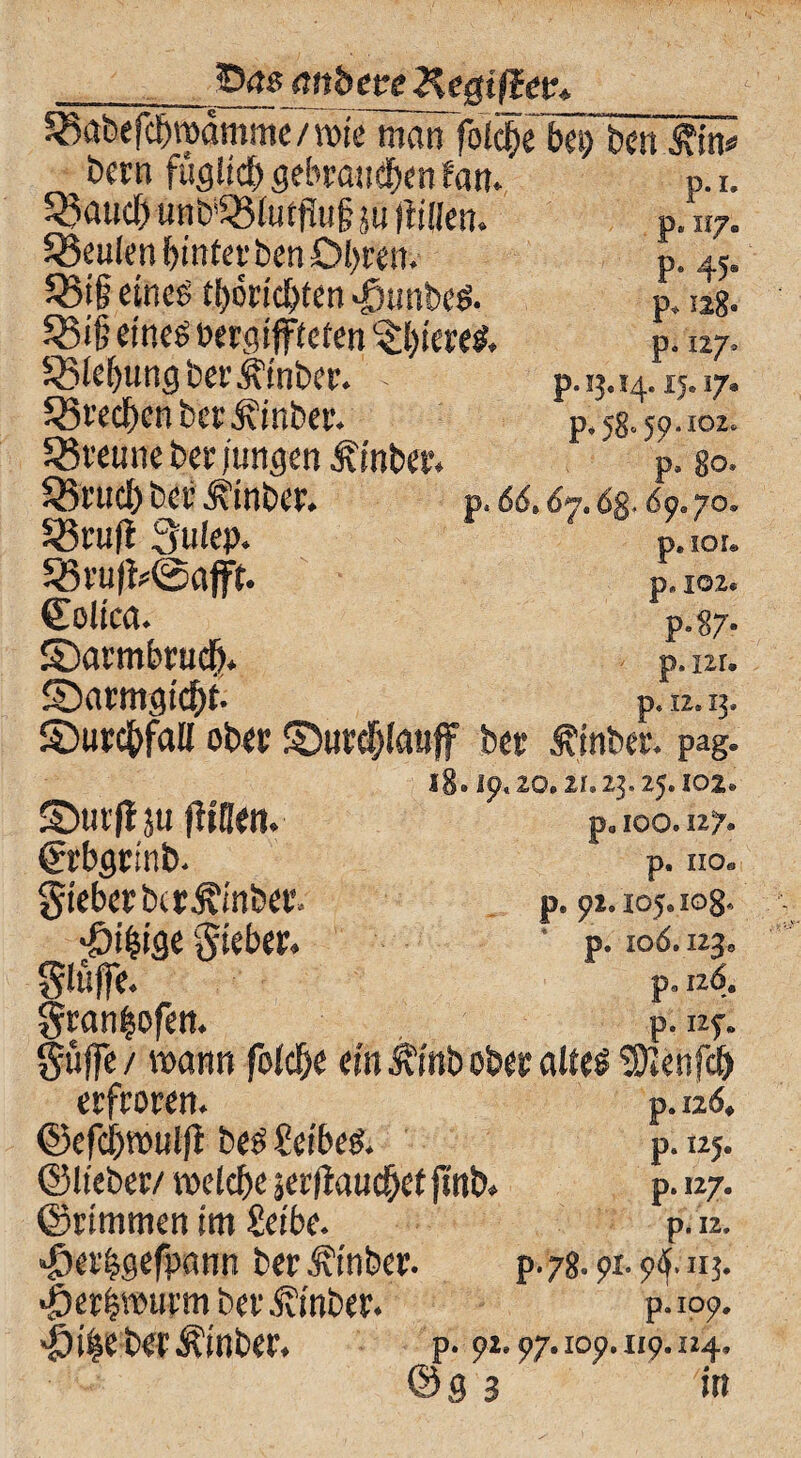 Das andere Register.
Badeschwämme/wie man solche bey den Kin⸗
dern füglich gebrauchen kan. p. 1.
Bauch und Blutfluß zu stillen. p. 117.
Beulen hinter den Ohren. p. 45.
Biß eines thörichten Hundes. p. 128.
Biß eines vergiffteten Thieres. p. 127.
Blehung der Kinder. p. 13. 14. 15. 17.
Brechen der Kinder. p. 58. 59. 102.
Breune der jungen Kinder. p. 80.
Bruch der Kinder. p. 66. 67. 68. 69. 70.
Brust Julep. p. 101.
Brust⸗Safft. p. 102.
Colica. p. 87.
Darmbruch. p. 121.
Darmgicht. p. 12. 13.
Durchfall oder Durchlauff der Kinder. pag.
18. 19. 20. 21. 23. 25. 102.
Durst zu stillen. p. 100. 127.
Erbgrind. p. 110.
Fieber der Kinder. p. 92. 105. 108.
Hitzige Fieber. p. 106. 123.
Flüsse. p. 126.
Frantzosen. p. 125.
Füsse / wann solche ein Kind oder altes Mensch
erfroren. p. 126.
Geschwulst des Leibes. p. 125.
Glieder/ welche zerstauchet sind. p. 127.
Grimmen im Leibe. p. 12.
Hertzgespann der Kinder. p. 78. 91. 94. 113.
Hertzwurm der Kinder. p. 109.
Hitze der Kinder. p. 92. 97. 109. 119. 124.
Gg 3 in